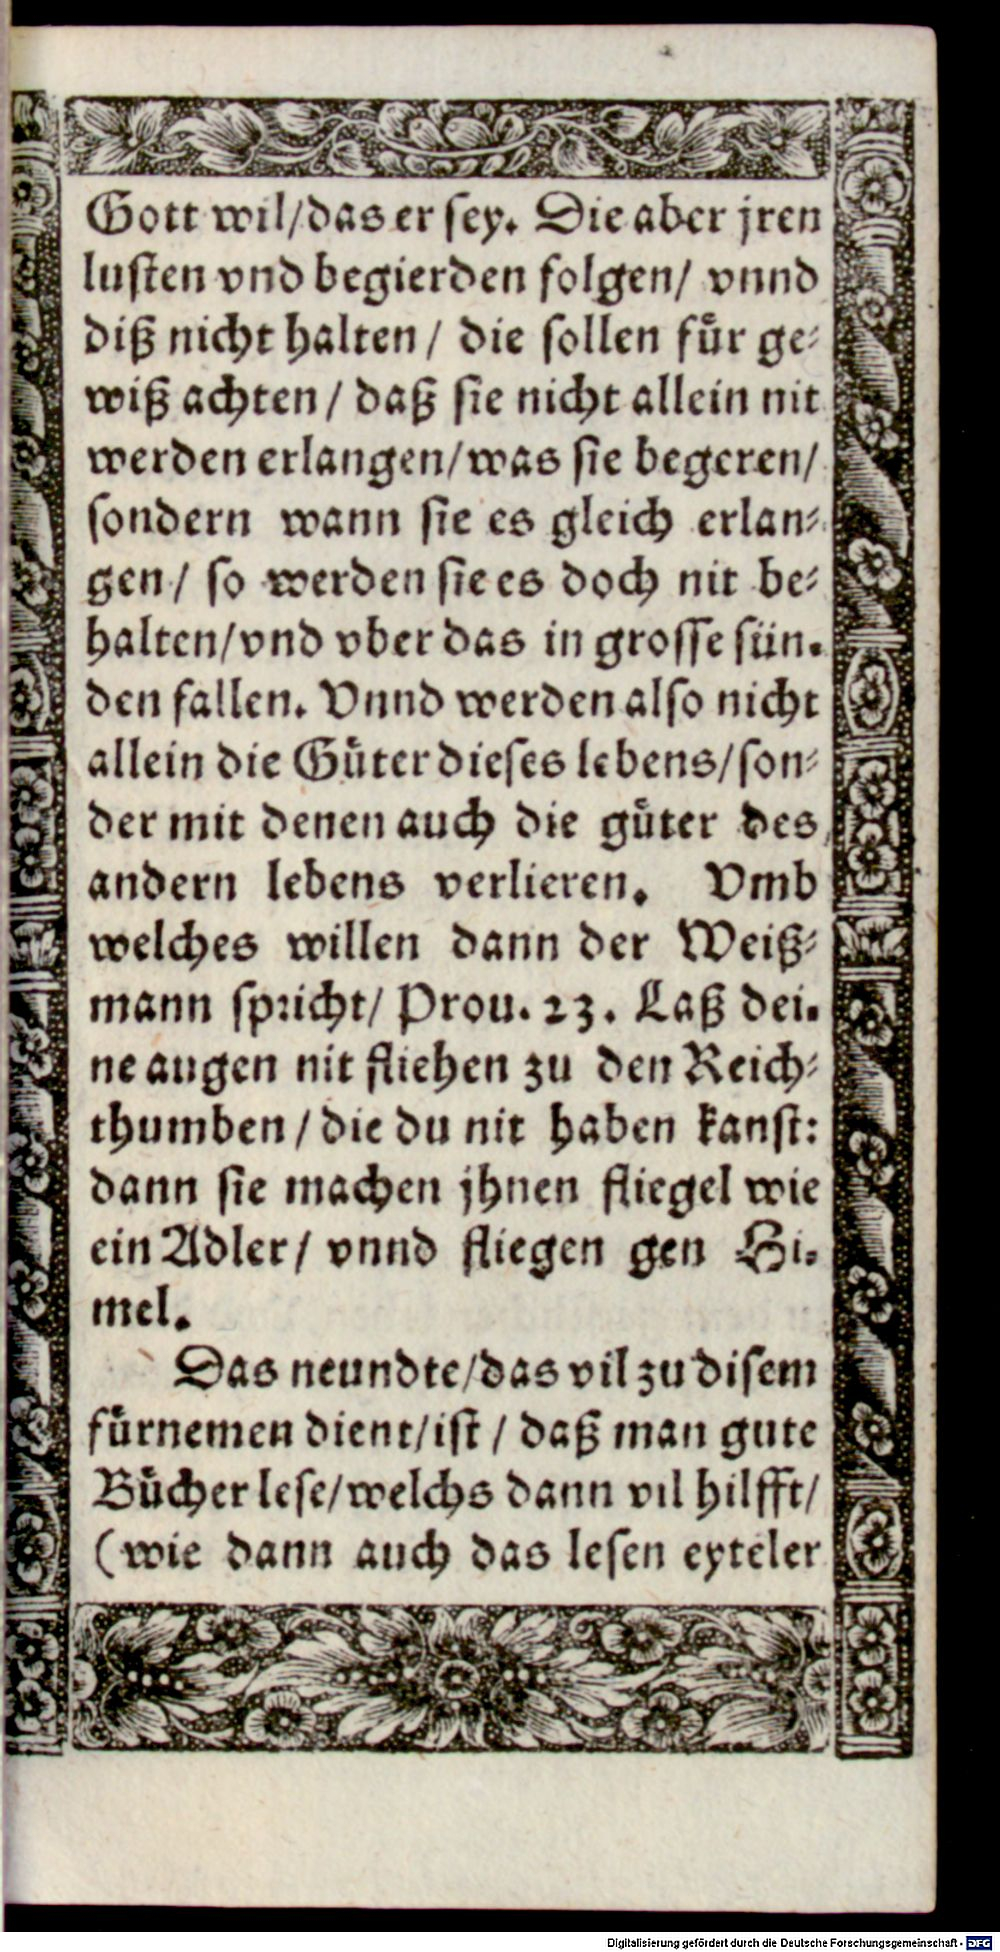 Gott wil/das er sey. Die aber jren
lusten vnd begierden folgen/ vnnd
diß nicht halten / die sollen fuͤr ge-
wiß achten / daß sie nicht allein nit
werden erlangen/was sie begeren/
sondern wann sie es gleich erlan-
gen / so werden sie es doch nit be-
halten/vnd vber das in grosse sün-
den fallen. Vnnd werden also nicht
allein die Guͤter dieses lebens/son-
der mit denen auch die guͤter des
andern lebens verlieren. Vmb
welches willen dann der Weiß-
mann spricht/ Prou. 23. Laß dei-
ne augen nit fliehen zu den Reich-
thumben / die du nit haben kanst:
dann sie machen jhnen fliegel wie
ein Adler/ vnnd fliegen gen Hi-
mel.
Das neundte/das vil zu disem
fuͤrnemen dient/ist / daß man gute
Buͤcher lese/welchs dann vil hilfft/
(wie dann auch das lesen eyteler
Digitalisierung gefördert durch die Deutsche Forschungsgemeinschaft - DFG